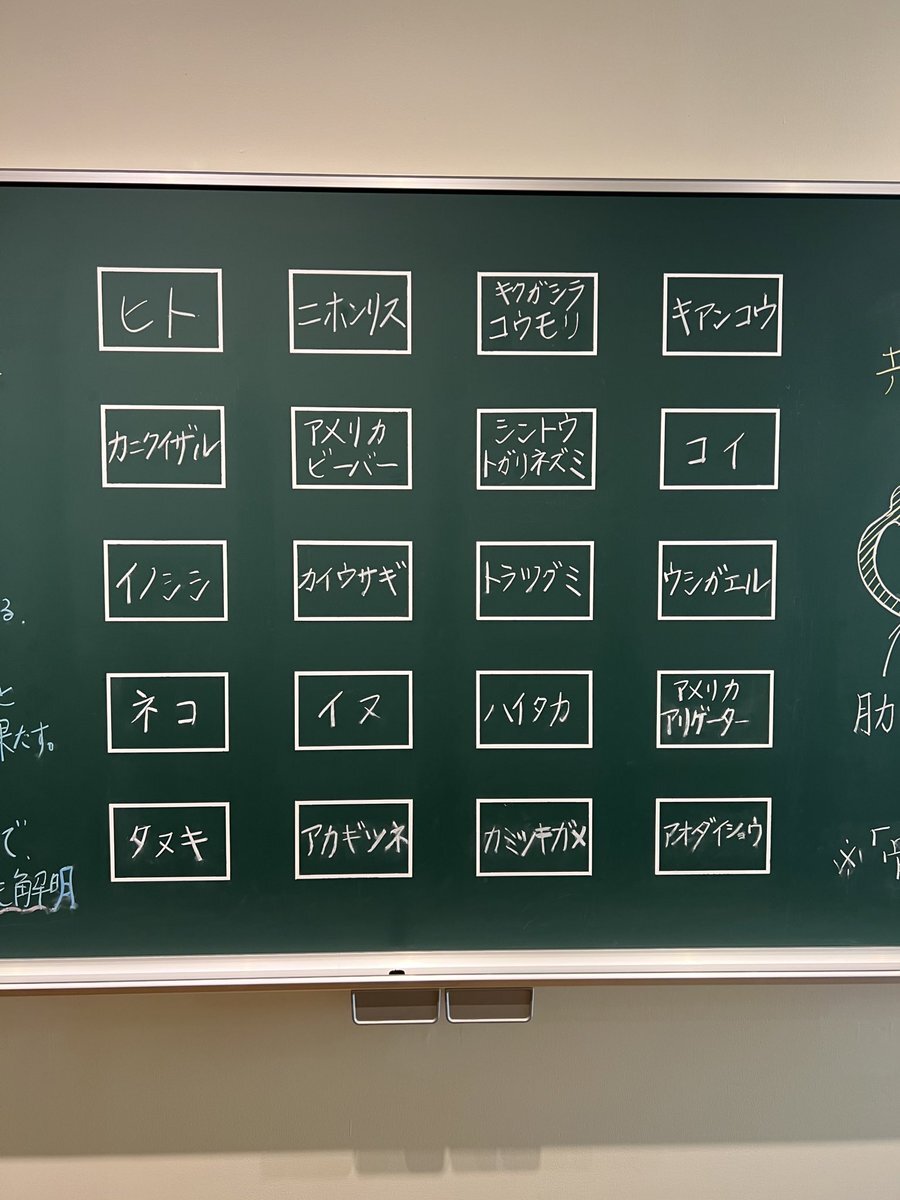 ヒト
ニホンリス
キクガシラ
コウモリ
キアンコウ
カニクイザル
アメリカ
ビーバー
シントウ
トガリネズミ
コイ
イノシシ
カイウサギ
トラツグミ
ウシガエル
ネコ
イヌ
ハイタカ
アメリカ
アリゲーター
タヌキ
アカギツネ
カミツキガメ
アオダイショウ
る.
と
果たす。
で,
解明
肋
※「骨